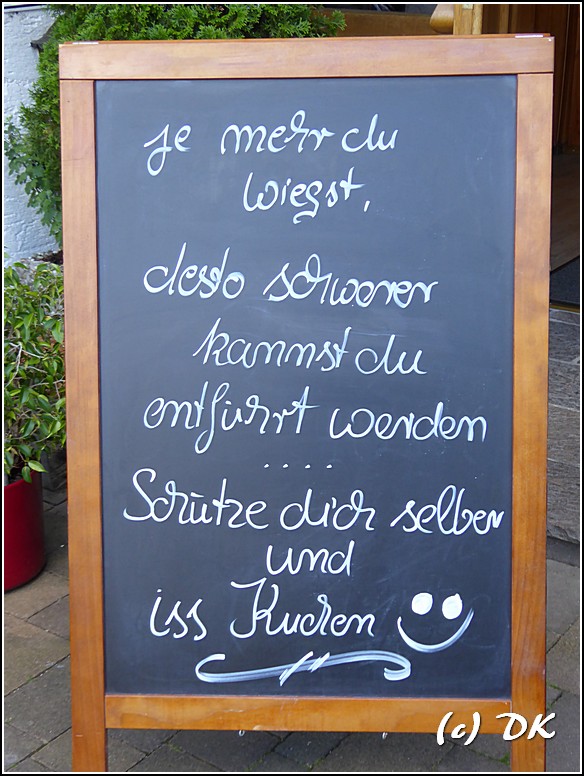 je mehr du
wiegst,
desto schwerer
kannst du
entführt werden
....
Schütze dich selber
und
iss Kuchen
(c) DK